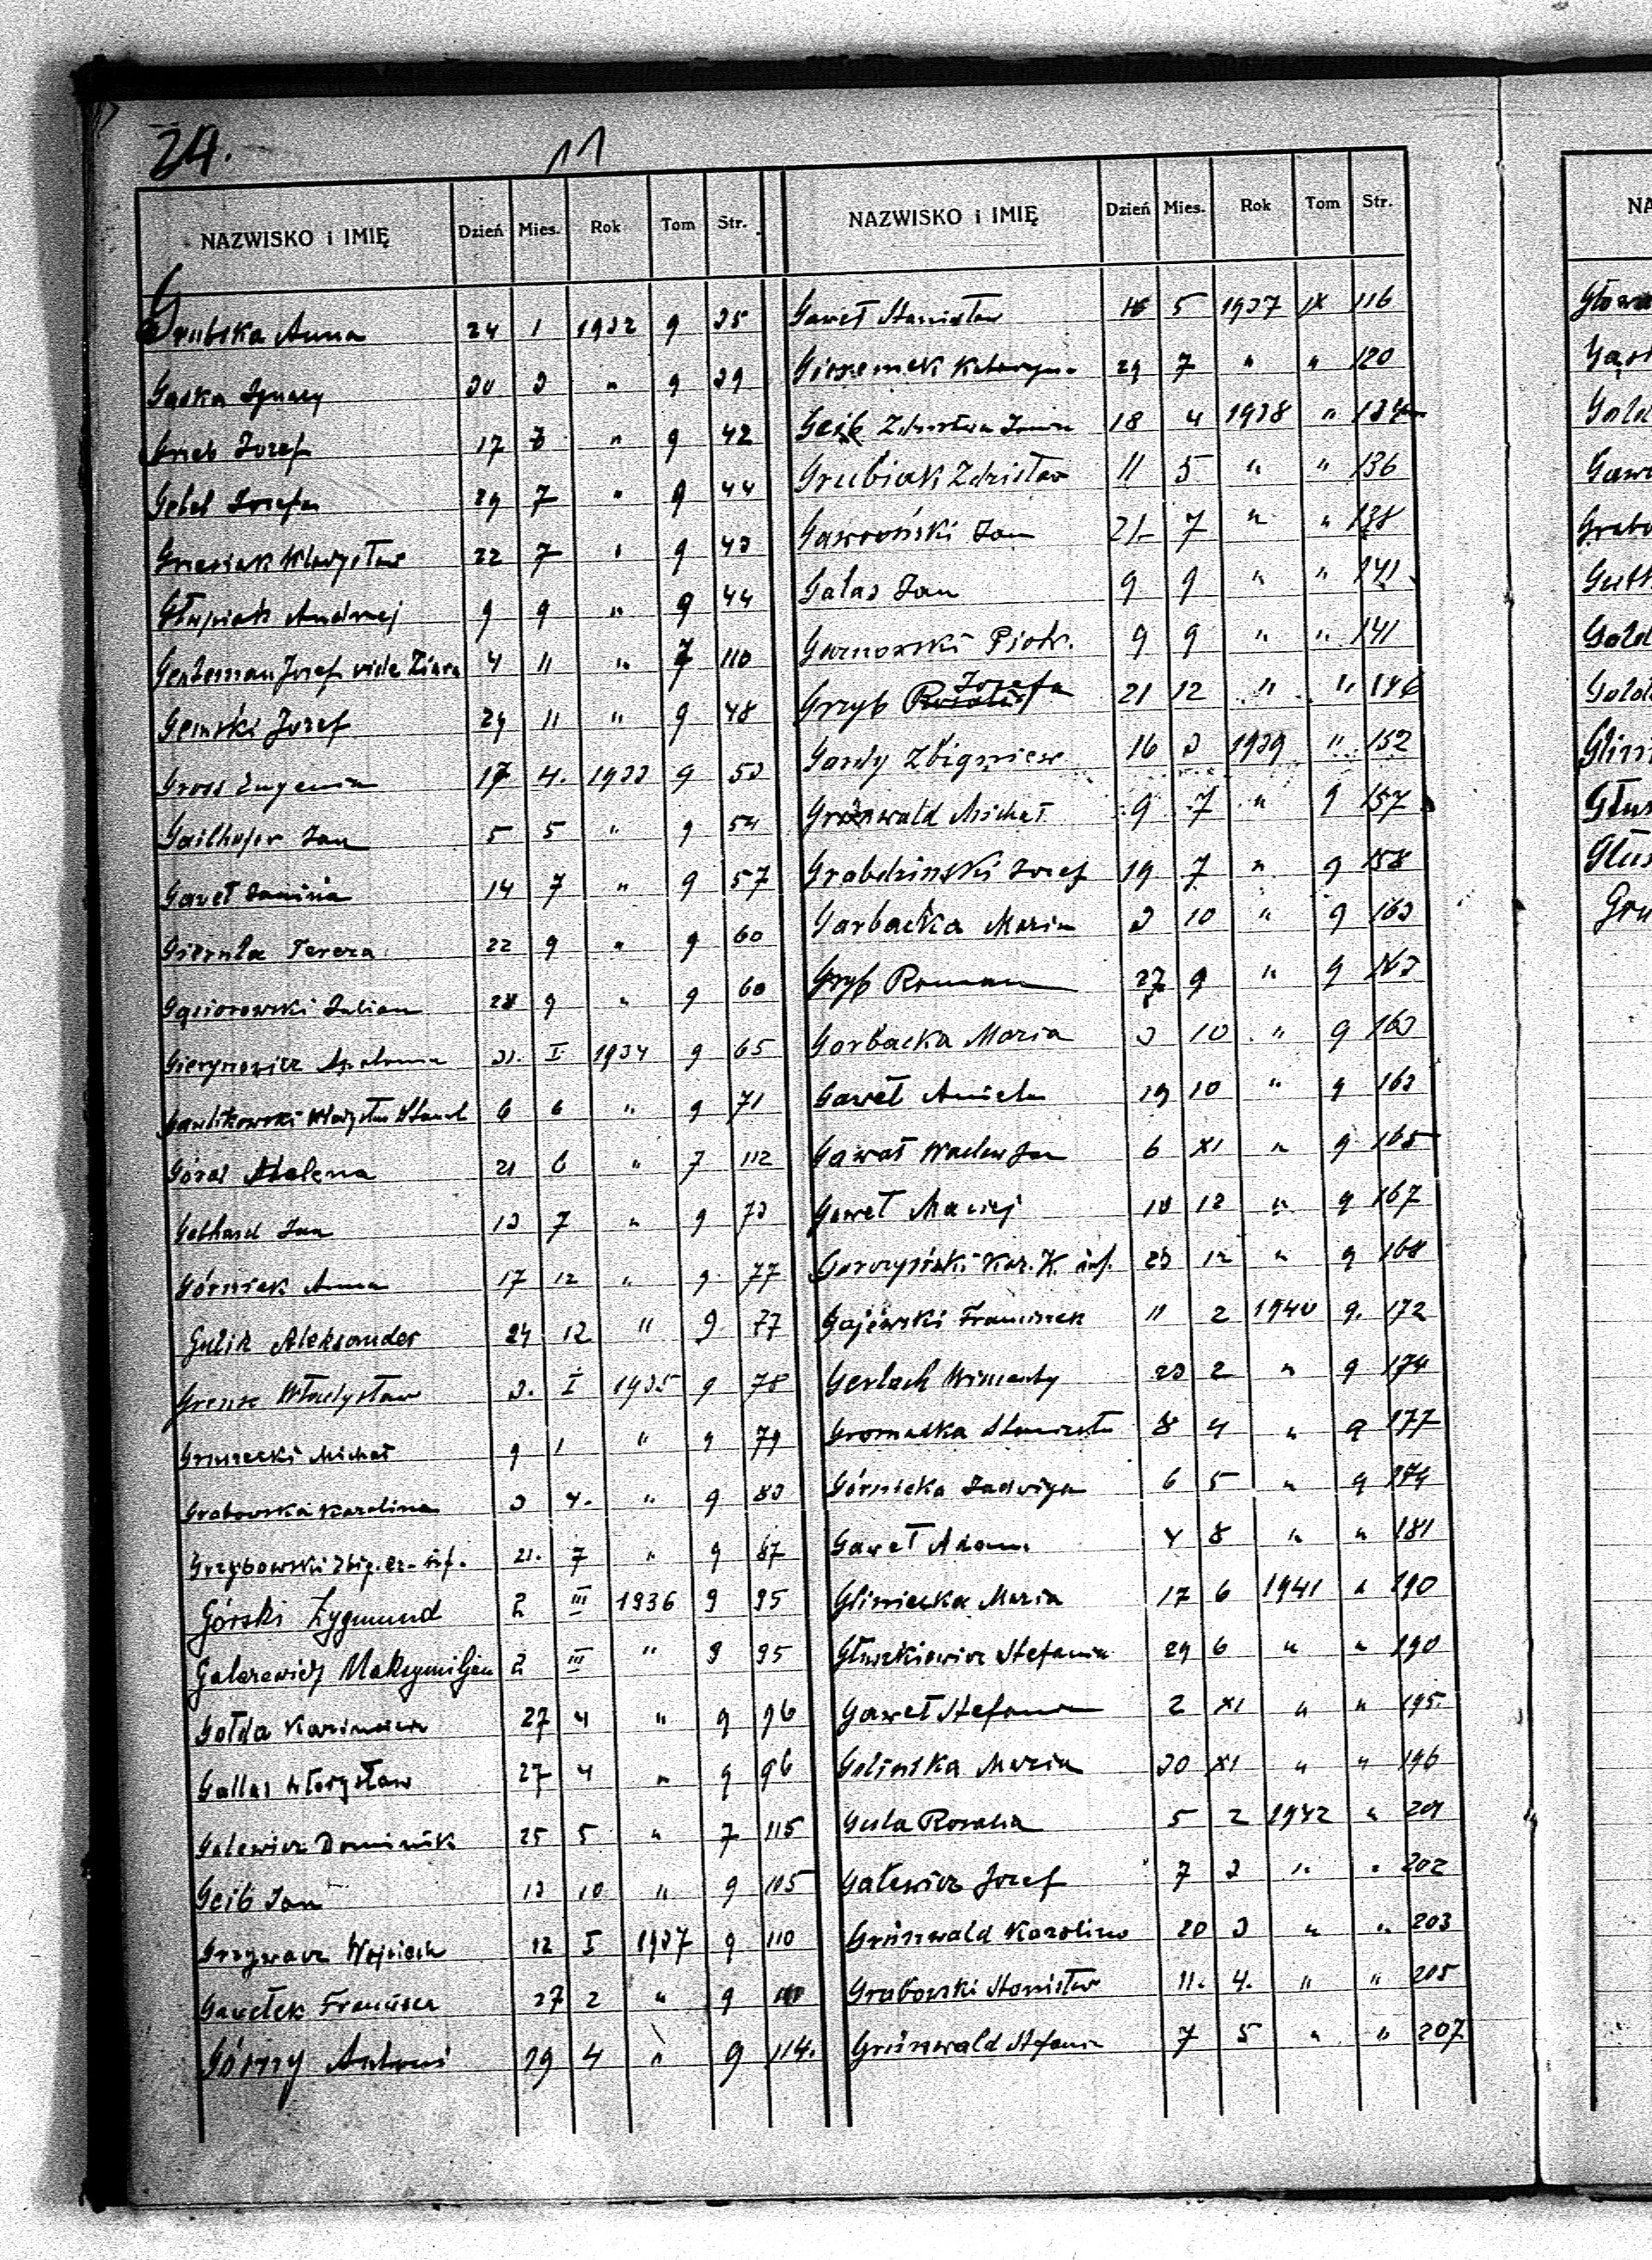 24.
11
NAZWISKO i IMIĘ Dzień Mies. Rok Tom Str.
G
Grubska Anna 24 1 1932 9 35
Gąska Ignacy 30 3 " 9 39
Grieb Jozef 17 " 9 42
Gebel Jozefa 29 7 " 9 44
Władysław 22 7 " 9 43
Andrzej 9 9 " 9 44
Jozef vide 4 11 " 7 110
Jozef 29 11 " 9 48
Gross Eugenia 17 4. 1933 9 53
Gailhofer Jan 5 5 " 9 54
Gaweł Janina 14 7 " 9 57
Gierula Teresa 22 9 " 9 60
Gąsiorowski Julian 28 9 " 9 60
Gierynowicz 31. I 1934 9 65
Gawlikowski Władysław 6 6 " 9 71
Góras 21 6 " 7 112
Gebhard Jan 13 7 " 9 73
Górniak Anna 17 12 " 9 77
Gulik Aleksander 24 12 " 9 77
Władysław 3. I 1935 9 78
Gruszecki Michał 9 1 " 9 79
Grabowska Karolina 3 4. " 9 83
Grzybowski Zbig. 21. 7 " 9 87
Górski Zygmund 2 III 1936 9 95
Galarewicz Maksymiljan 2 III " 9 95
Gołda Kazimiera 27 4 " 9 96
Gallas Władysław 27 4 " 9 96
Galewicz Dominik 25 5 " 7 115
Geib Jan 13 10 " 9 105
Grzywacz Wojciech 12 I 1937 9 110
Gawełek 27 2 " 9
Górny Antoni 19 4 " 9 114.
NAZWISKO i IMIĘ Dzień Mies. Rok Tom Str.
Gaweł Stanisław 5 1937 IX 116
Katarzyna 29 7 " " 120
Geib 18 4 1938 "
Grubiak Zdzisław 11 5 " " 136
Gawroński Jan 21 7 " " 138
Galas Jan 9 9 " " 141
Garnowski Piotr. 9 9 " " 141
Grzyb Jozefa 21 12 " " 146
Gardy Zbigniew 16 3 1939 " 152
Grünwald Michał 9 7 " 9 157
Grabdzinski Jozef 19 7 " 9 158
Garbacka Maria 3 10 " 9 163
Gryb Roman 27 9 " 9 163
Gorbacka Maria 3 10 " 9 163
Gaweł Aniela 19 10 " 9 163
Gawat Wacław Jan 6 XI " 9 165
Gaweł Maciej 10 12 " 9 167
Gorczyński Kaz. K. inf. 23 12 " 9 168
Gajewski Franciszek 11 2 1940 9. 172
Gerlach Wincenty 23 2 " 9 174
Gromadka 8 4 " 9 177
Górnicka Jadwiga 6 5 " 9 179
Gaweł Adam 4 8 " " 181
Gliniecka Maria 17 6 1941 " 190
Głuszkiewicz Stefania 29 6 " " 190
Gaweł Stefania 2 XI " " 195.
Golinska Maria 30 XI " " 196
Gula Rozalia 5 2 1942 " 201
Gałewicz Jozef 7 3 " " 202
Grünwald Karolina 20 3 " " 203
Grabowski Stanisław 11. 4. " " 205
Grünwald Stefania 7 5 " " 207